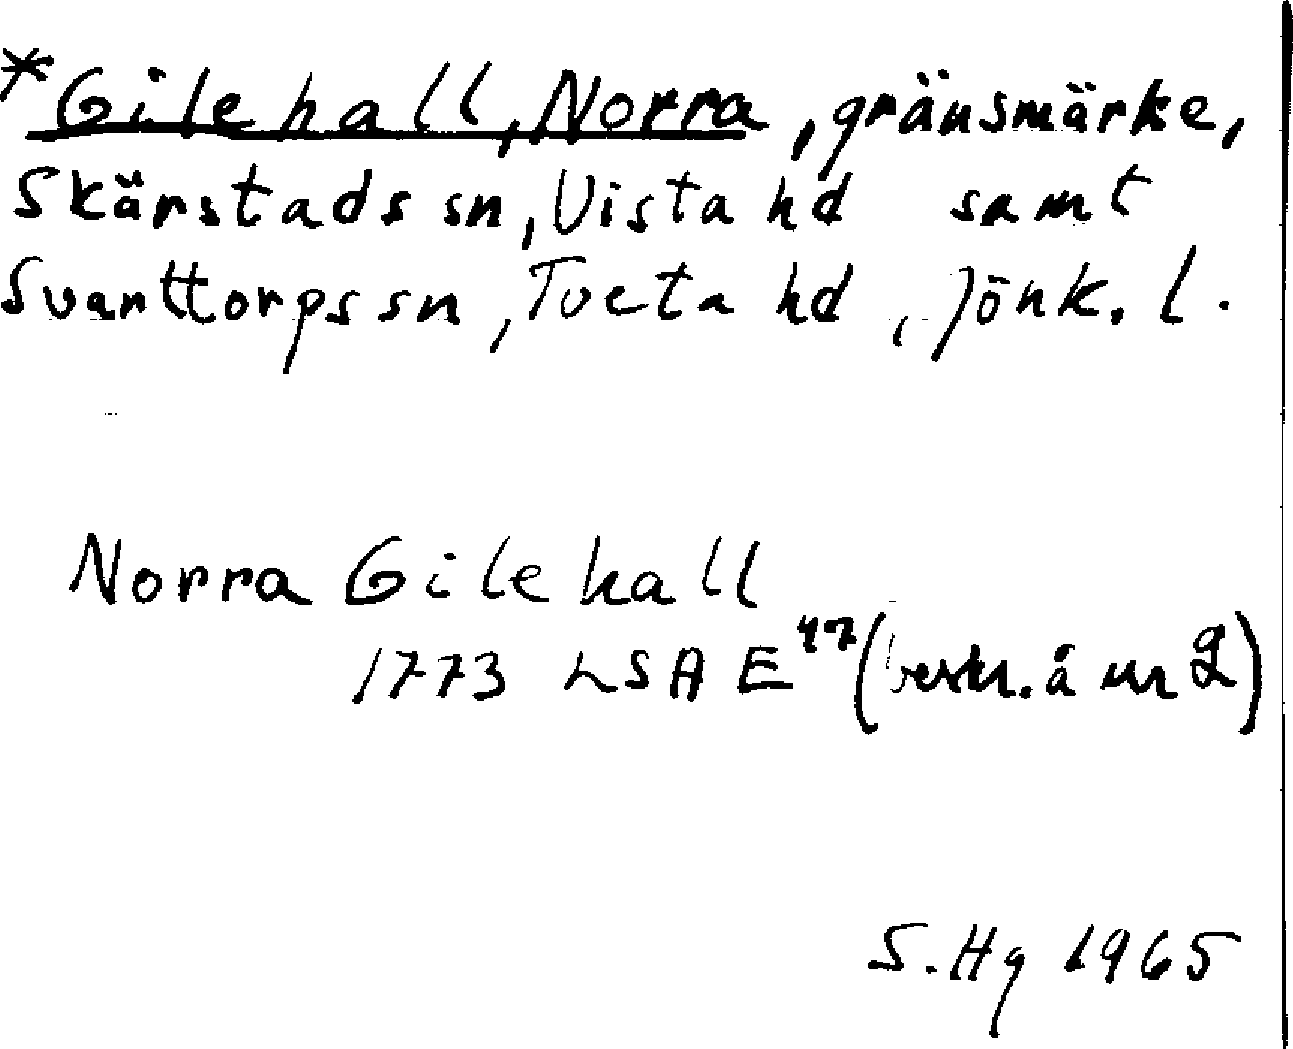 *Gilehall, Norra, gränsmärke,
Skärstads sn, Vista hd samt
Svarttorps sn, Tveta hd, Jönk. l.
Norra Gilehall
1773 LSA E 47 (beskr. å nr 2)
S. Hg 1965